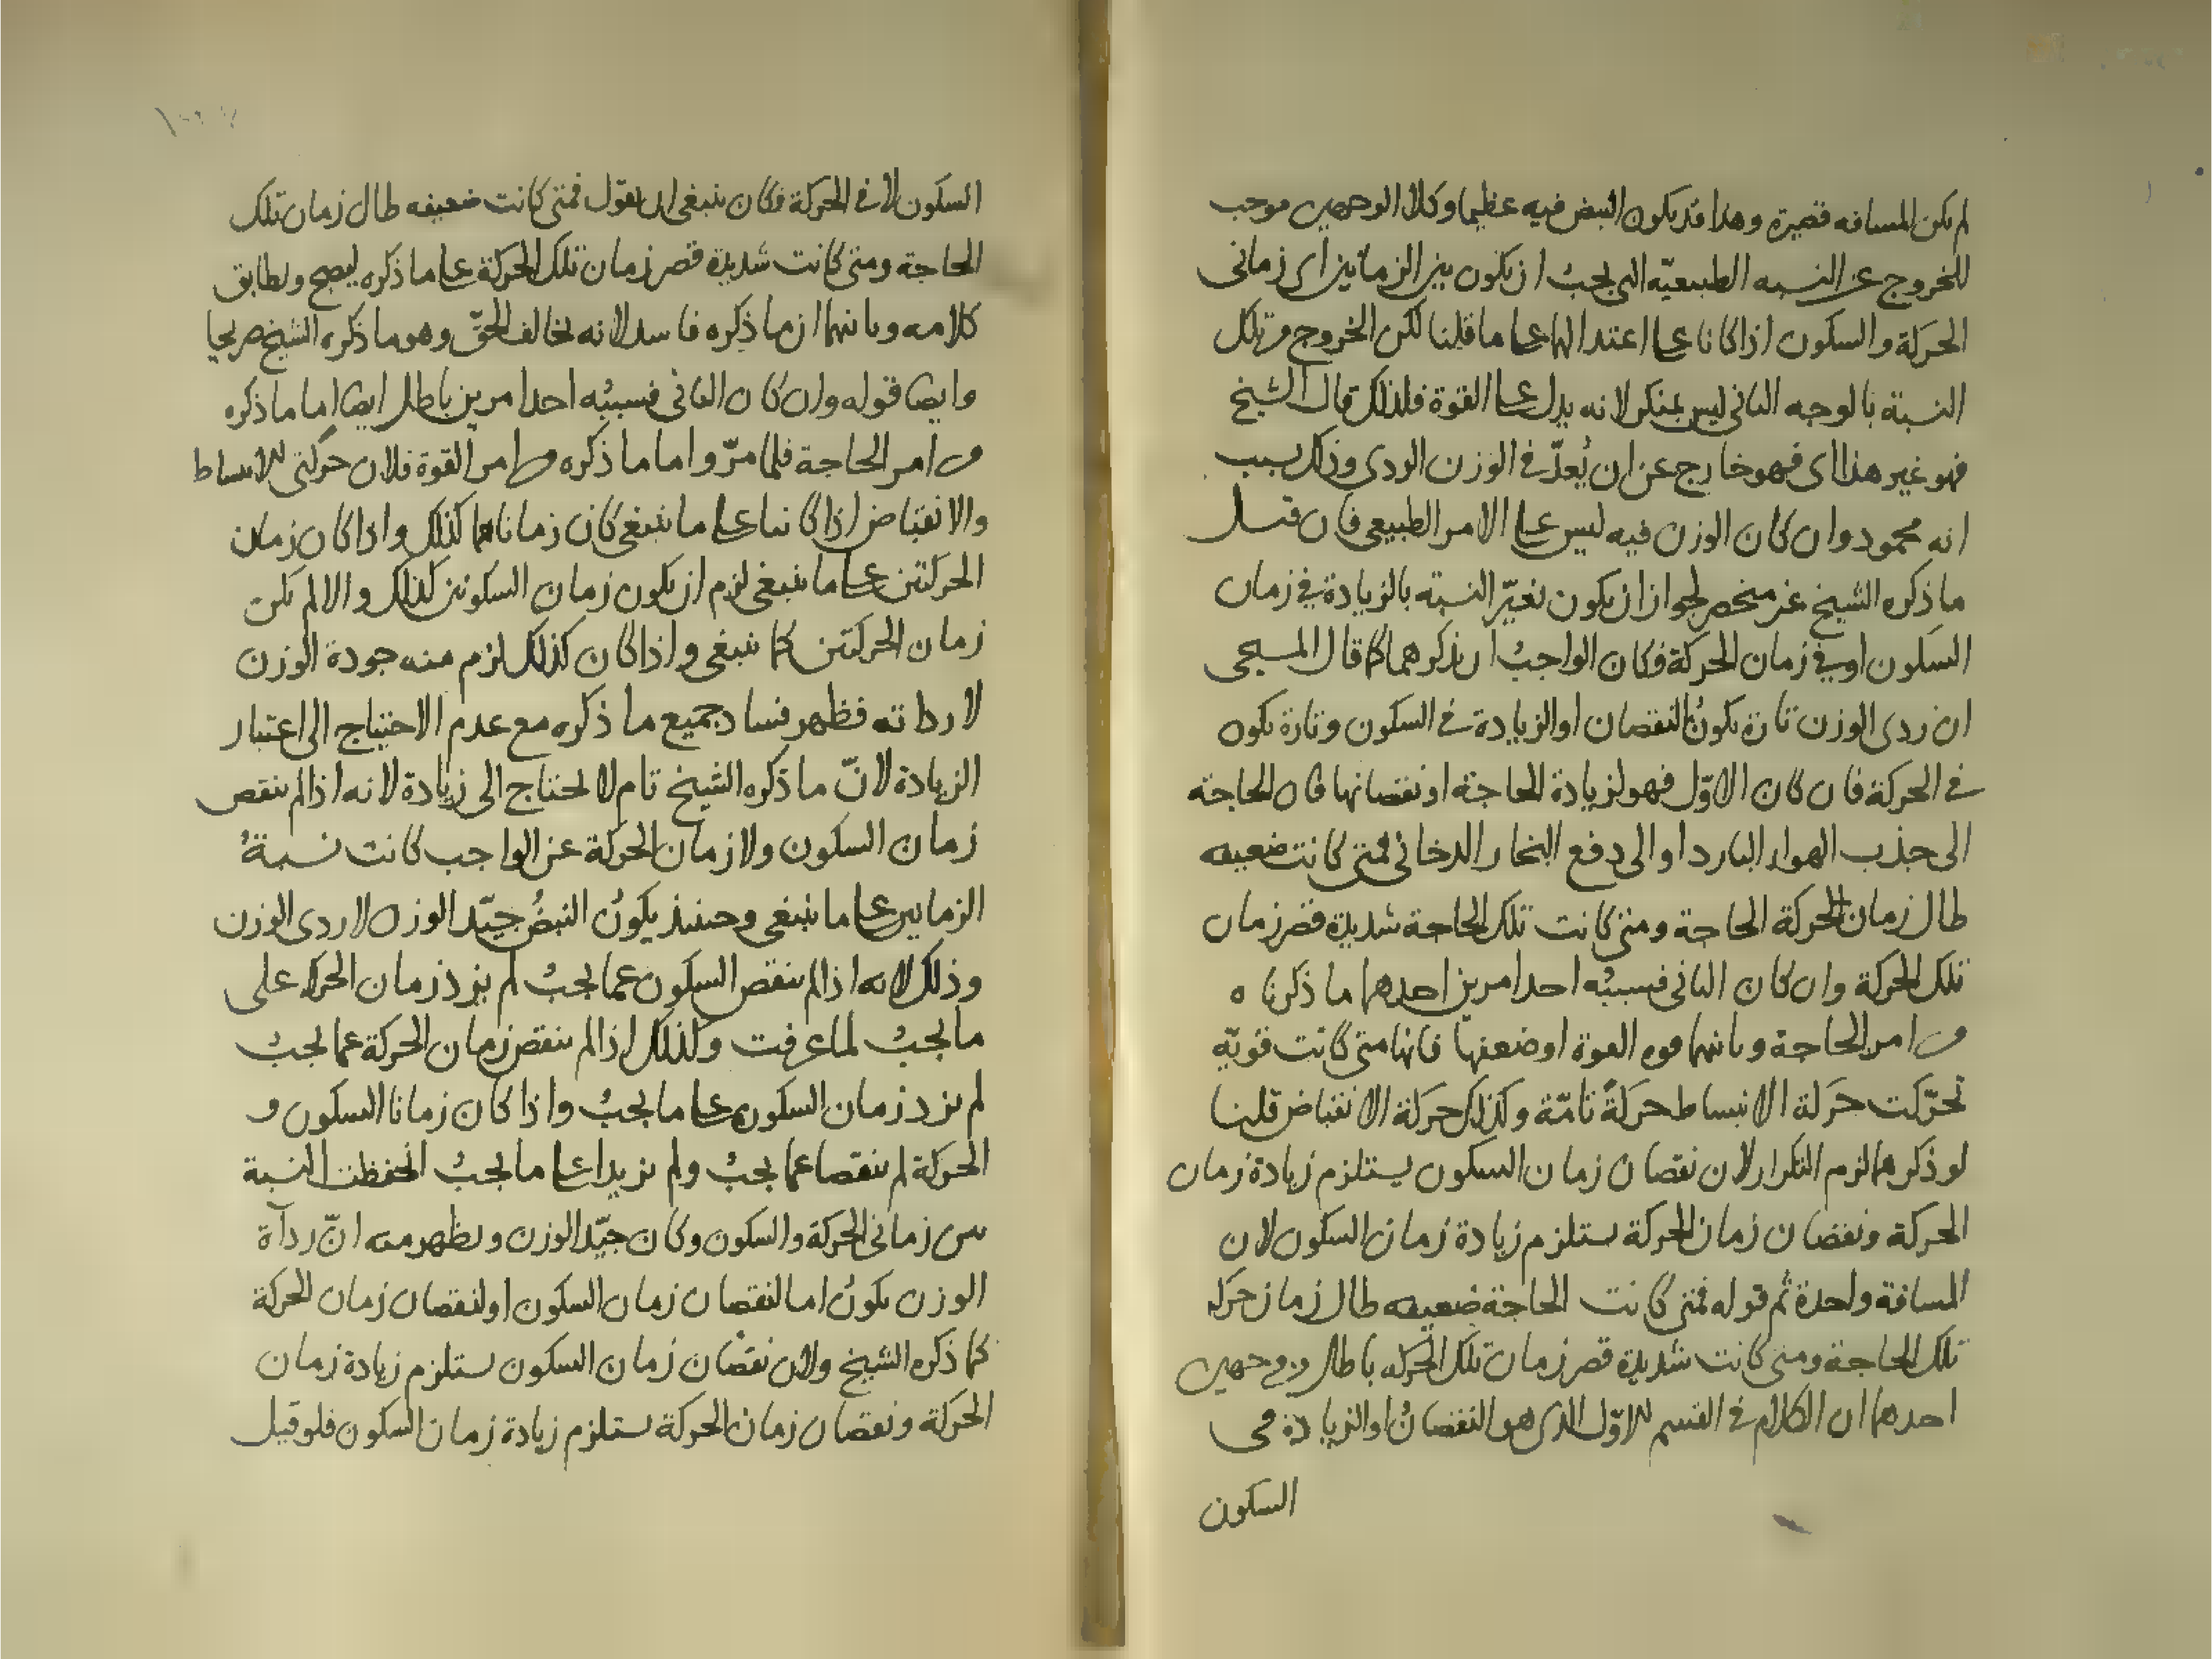 لم يكن المسافه قصيرة وهذا قد يكون النبض فيه عظيما وكلا الوجهين موجب
للخروج عن النسبه الطبيعيّه التي يجبُ ان يكون بين الزمانين اى زمانى
الحركة والسكون اذا كانا على اعتدالهما على ما قلنا لكن الخروج من تلك
النسبة بالوجه الثانى ليس بمنكر لانه يدل على القوة فلذلك قال الشيخ
فهو غير هذا اى فهو خارج عن ان يُعدّ فى الوزن الردى وذلك بسبب
انه محمود وان كان الوزن فيه ليس على الامر الطبيعى فان قيل
ما ذكره الشيخ غير منحصر لجواز ان يكون تغيّر النسبه بالزيادة فى زمان
السكون او فى زمان الحركة فكان الواجبُ ان يذكرهما كما قال المسيحى
ان ردى الوزن تارة يكونُ النقصان او الزيادة فى السكون وتارة يكون
فى الحركة فان كان الاوّل فهو لزيادة الحاجة او نقصانها فان الحاجة
الى جذب الهواء البارد او الى دفع البخار الدخانى فمتى كانت ضعيفه
طال زمان الحركة الحاجة ومتى كانت تلك الحاجة شديدة قصر زمان
تلك الحركة وان كان الثانى فسببُه احد امرين احدهما ما ذكرناه
من امر الحاجة وثانيهما قوه القوة او ضعفها فانها متى كانت قويّه
تحرّكت حركة الانبساط حركةً تامّة وكذلك حركة الانقباض قلنا
لو ذكرهما لزم التكرار لان نقصان زمان السكون يستلزم زيادة زمان
الحركة ونقصان زمان الحركة يستلزم زيادة زمان السكون لان
المسافة واحدة ثم قوله فمتى كانت الحاجة ضعيفه طال زمان حركه
تلك الحاجة ومتى كانت شديدة قصر زمان تلك الحركه باطل من وجهين
احدهما ان الكلام فى القسم الاوّل الذى هو النقصانُ او الزيادة فى
السكون
السكون لا فى الحركة فكان ينبغى ان يقول فمتى كانت ضعيفه طال زمان تلك
الحاجة ومتى كانت شديدة قصر زمان تلك الحركة على ما ذكره ليصح ويطابق
كلامه وثانيهما ان ما ذكره فاسد لانه يخالف الحقّ وهو ما ذكره الشيخ صريحا
وايضا قوله وان كان الثانى فسببُه احد امرين باطل ايضا اما ما ذكره
من امر الحاجة فلما مرّ واما ما ذكره من امر القوة فلان حركتى الانبساط
والانقباض اذا كانتا على ما ينبغى كان زماناهما كذلك واذا كان زمان
الحركتين على ما ينبغى لزم ان يكون زمان السكونين كذلك والا لم يكن
زمان الحركتين كما ينبغى واذا كان كذلك لزم منه جودة الوزن
لا رداته فظهر فساد جميع ما ذكره مع عدم الاحتياج الى اعتبار
الزيادة لانّ ما ذكره الشيخ تام لا يحتاج الى زيادة لانه اذا لم ينقص
زمان السكون ولا زمان الحركة عن الواجب كانت نسبةُ
الزمانين على ما ينبغى وحينئذ يكونُ النبضُ جيّد الوزن لا ردى الوزن
وذلك لانه اذا لم ينقص السكون عما يجبُ لم يزد زمان الحركه على
ما يجبُ لما عرفت وكذلك اذا لم ينقص زمان الحركة عما يجبُ
لم يزد زمان السكون على ما يجبُ واذا كان زمانا السكون و
الحركة لم ينقصا عما يجبُ ولم يزيدا على ما يجبُ انحفظت النسبة
بين زمانى الحركة والسكون وكان جيّد الوزن ويظهر منه انّ ردآة
الوزن يكونُ اما لنقصان زمان السكون او لنقصان زمان الحركة
كما ذكره الشيخ ولان نقصان زمان السكون يستلزم زيادة زمان
الحركة ونقصان زمان الحركة يستلزم زيادة زمان السكون فلو قيل